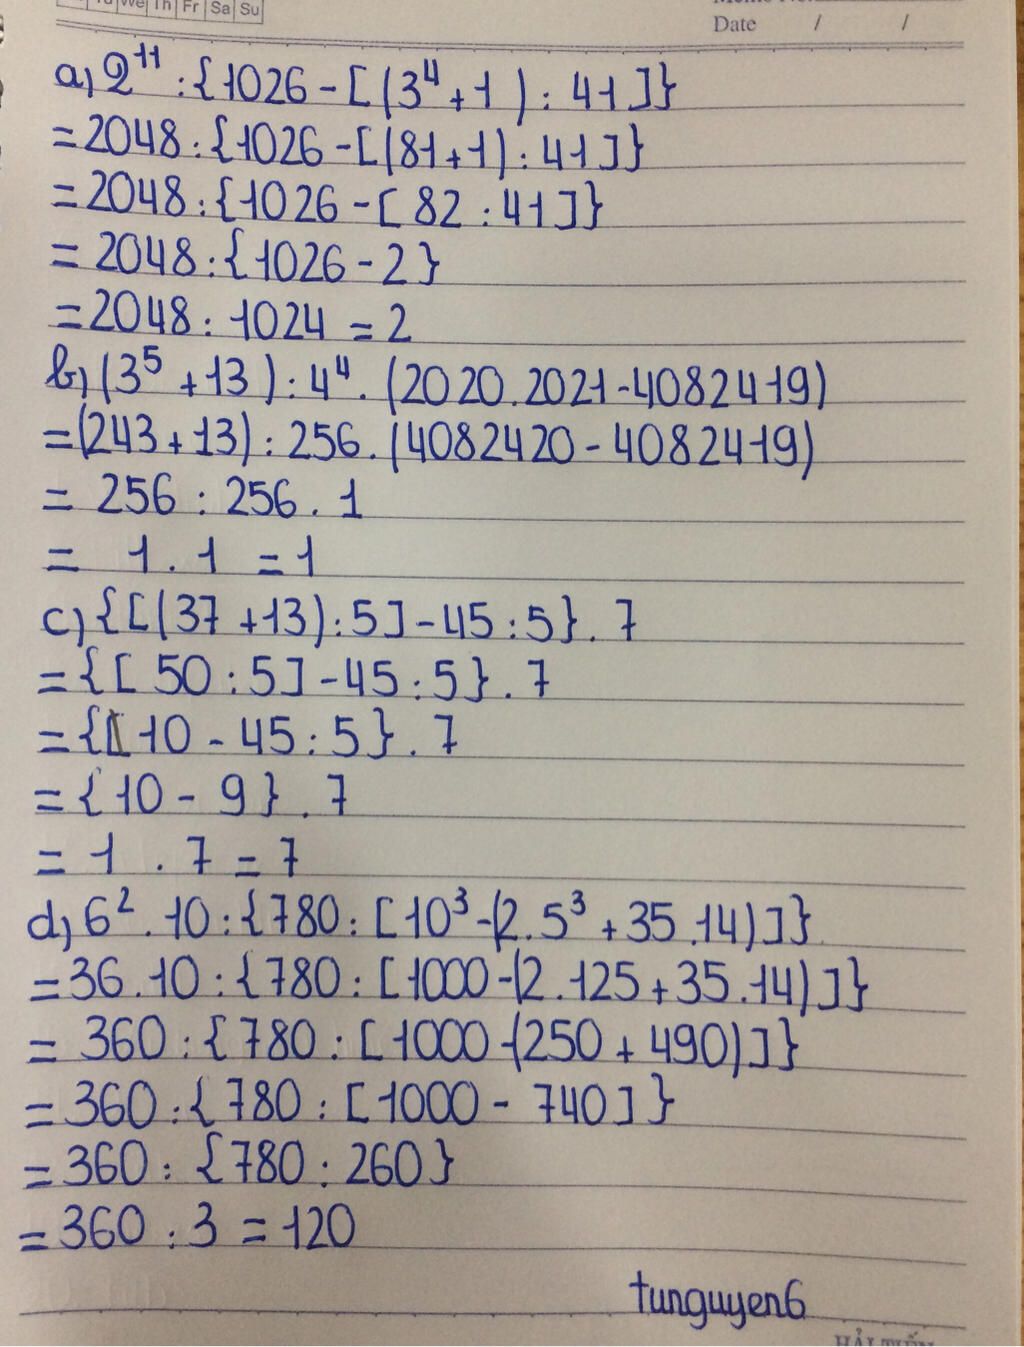 Tu We Th Fr Sa Su
Date / /
a) 2¹¹ : {1026 - [(3⁴ + 1) : 41]}
= 2048 : {1026 - [(81 + 1) : 41]}
= 2048 : {1026 - [82 : 41]}
= 2048 : {1026 - 2}
= 2048 : 1024 = 2
b) (3⁵ + 13) : 4⁴ . (2020 . 2021 - 4082419)
= (243 + 13) : 256 . (4082420 - 4082419)
= 256 : 256 . 1
= 1 . 1 = 1
c) {[(37 + 13) : 5] - 45 : 5} . 7
= {[50 : 5] - 45 : 5} . 7
= {[10 - 45 : 5} . 7
= {10 - 9} . 7
= 1 . 7 = 7
d) 6² . 10 : {780 : [10³ - (2 . 5³ + 35 . 14)]}
= 36 . 10 : {780 : [1000 - (2 . 125 + 35 . 14)]}
= 360 : {780 : [1000 - (250 + 490)]}
= 360 : {780 : [1000 - 740]}
= 360 : {780 : 260}
= 360 : 3 = 120
tunguyen6
HẢI TIẾN